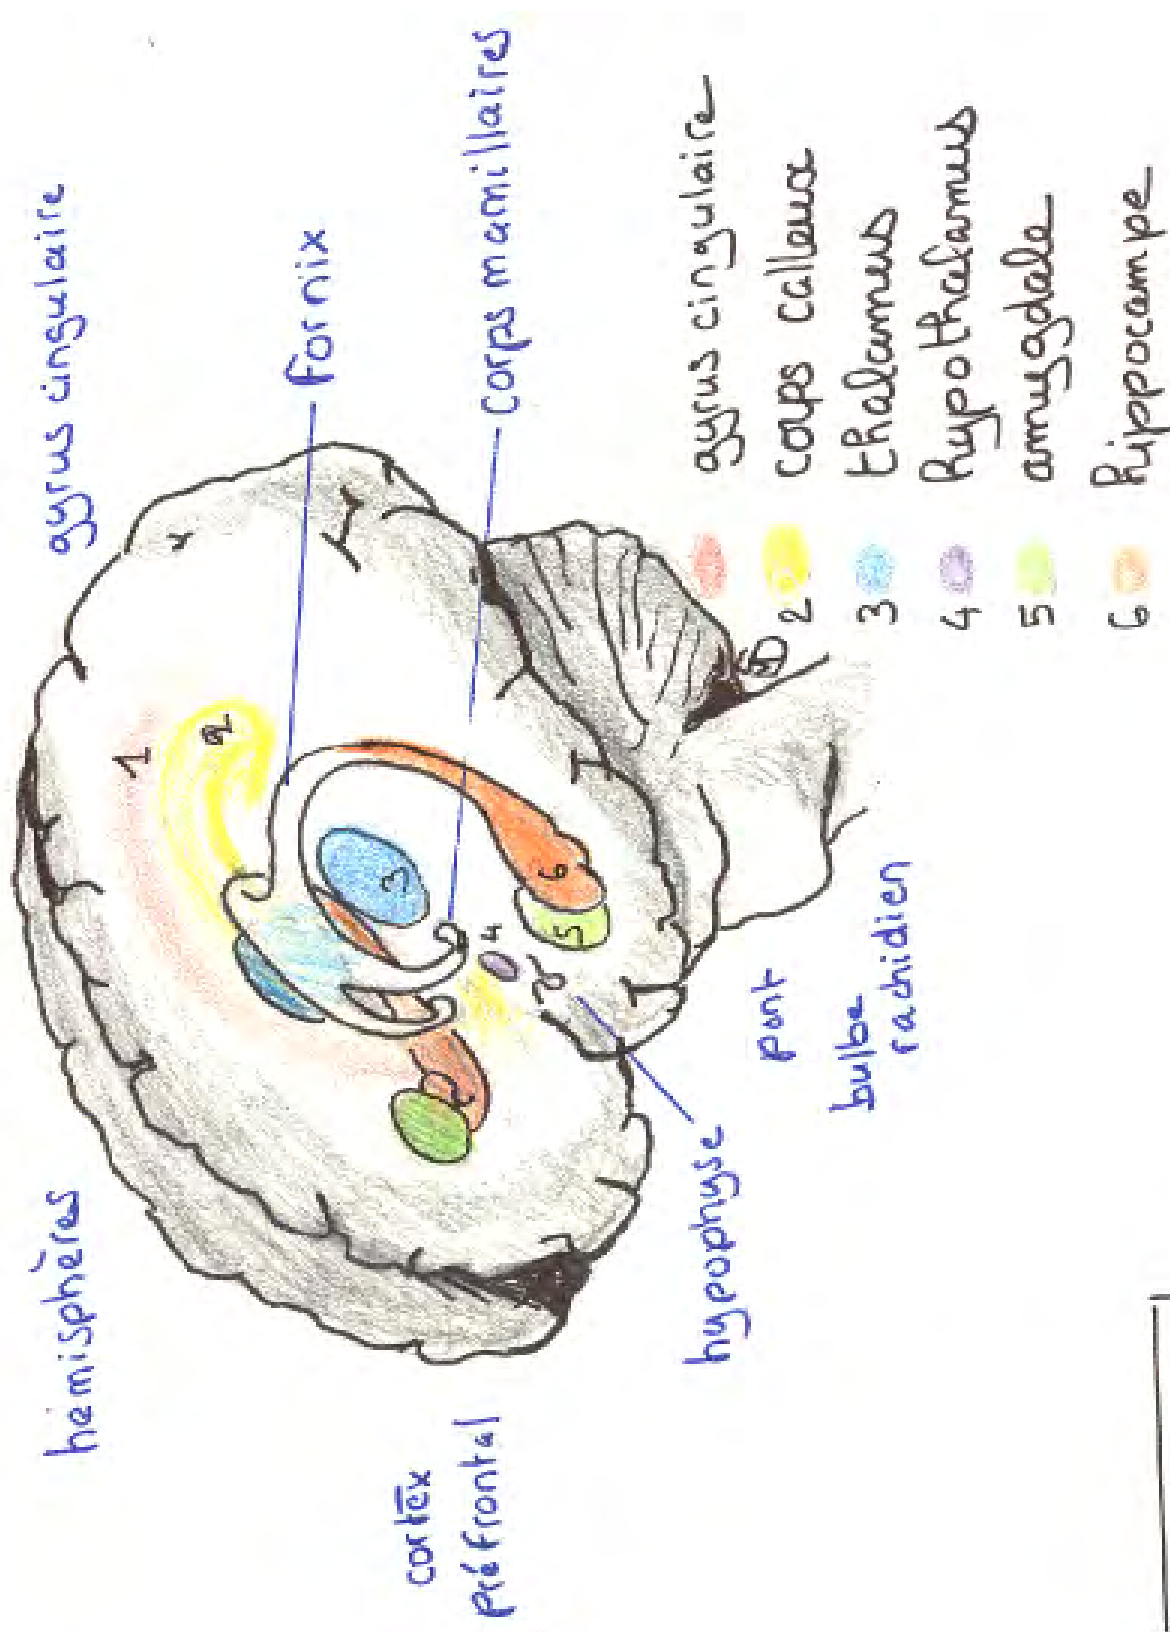 hémisphères
gyrus cingulaire
fornix
corps mamillaires
cortex
préfrontal
hypophyse
pont
bulbe
rachidien
1
2
3
4
5
6
gyrus cingulaire
2 corps calleux
3 thalamus
4 hypothalamus
5 amygdale
6 hippocampe